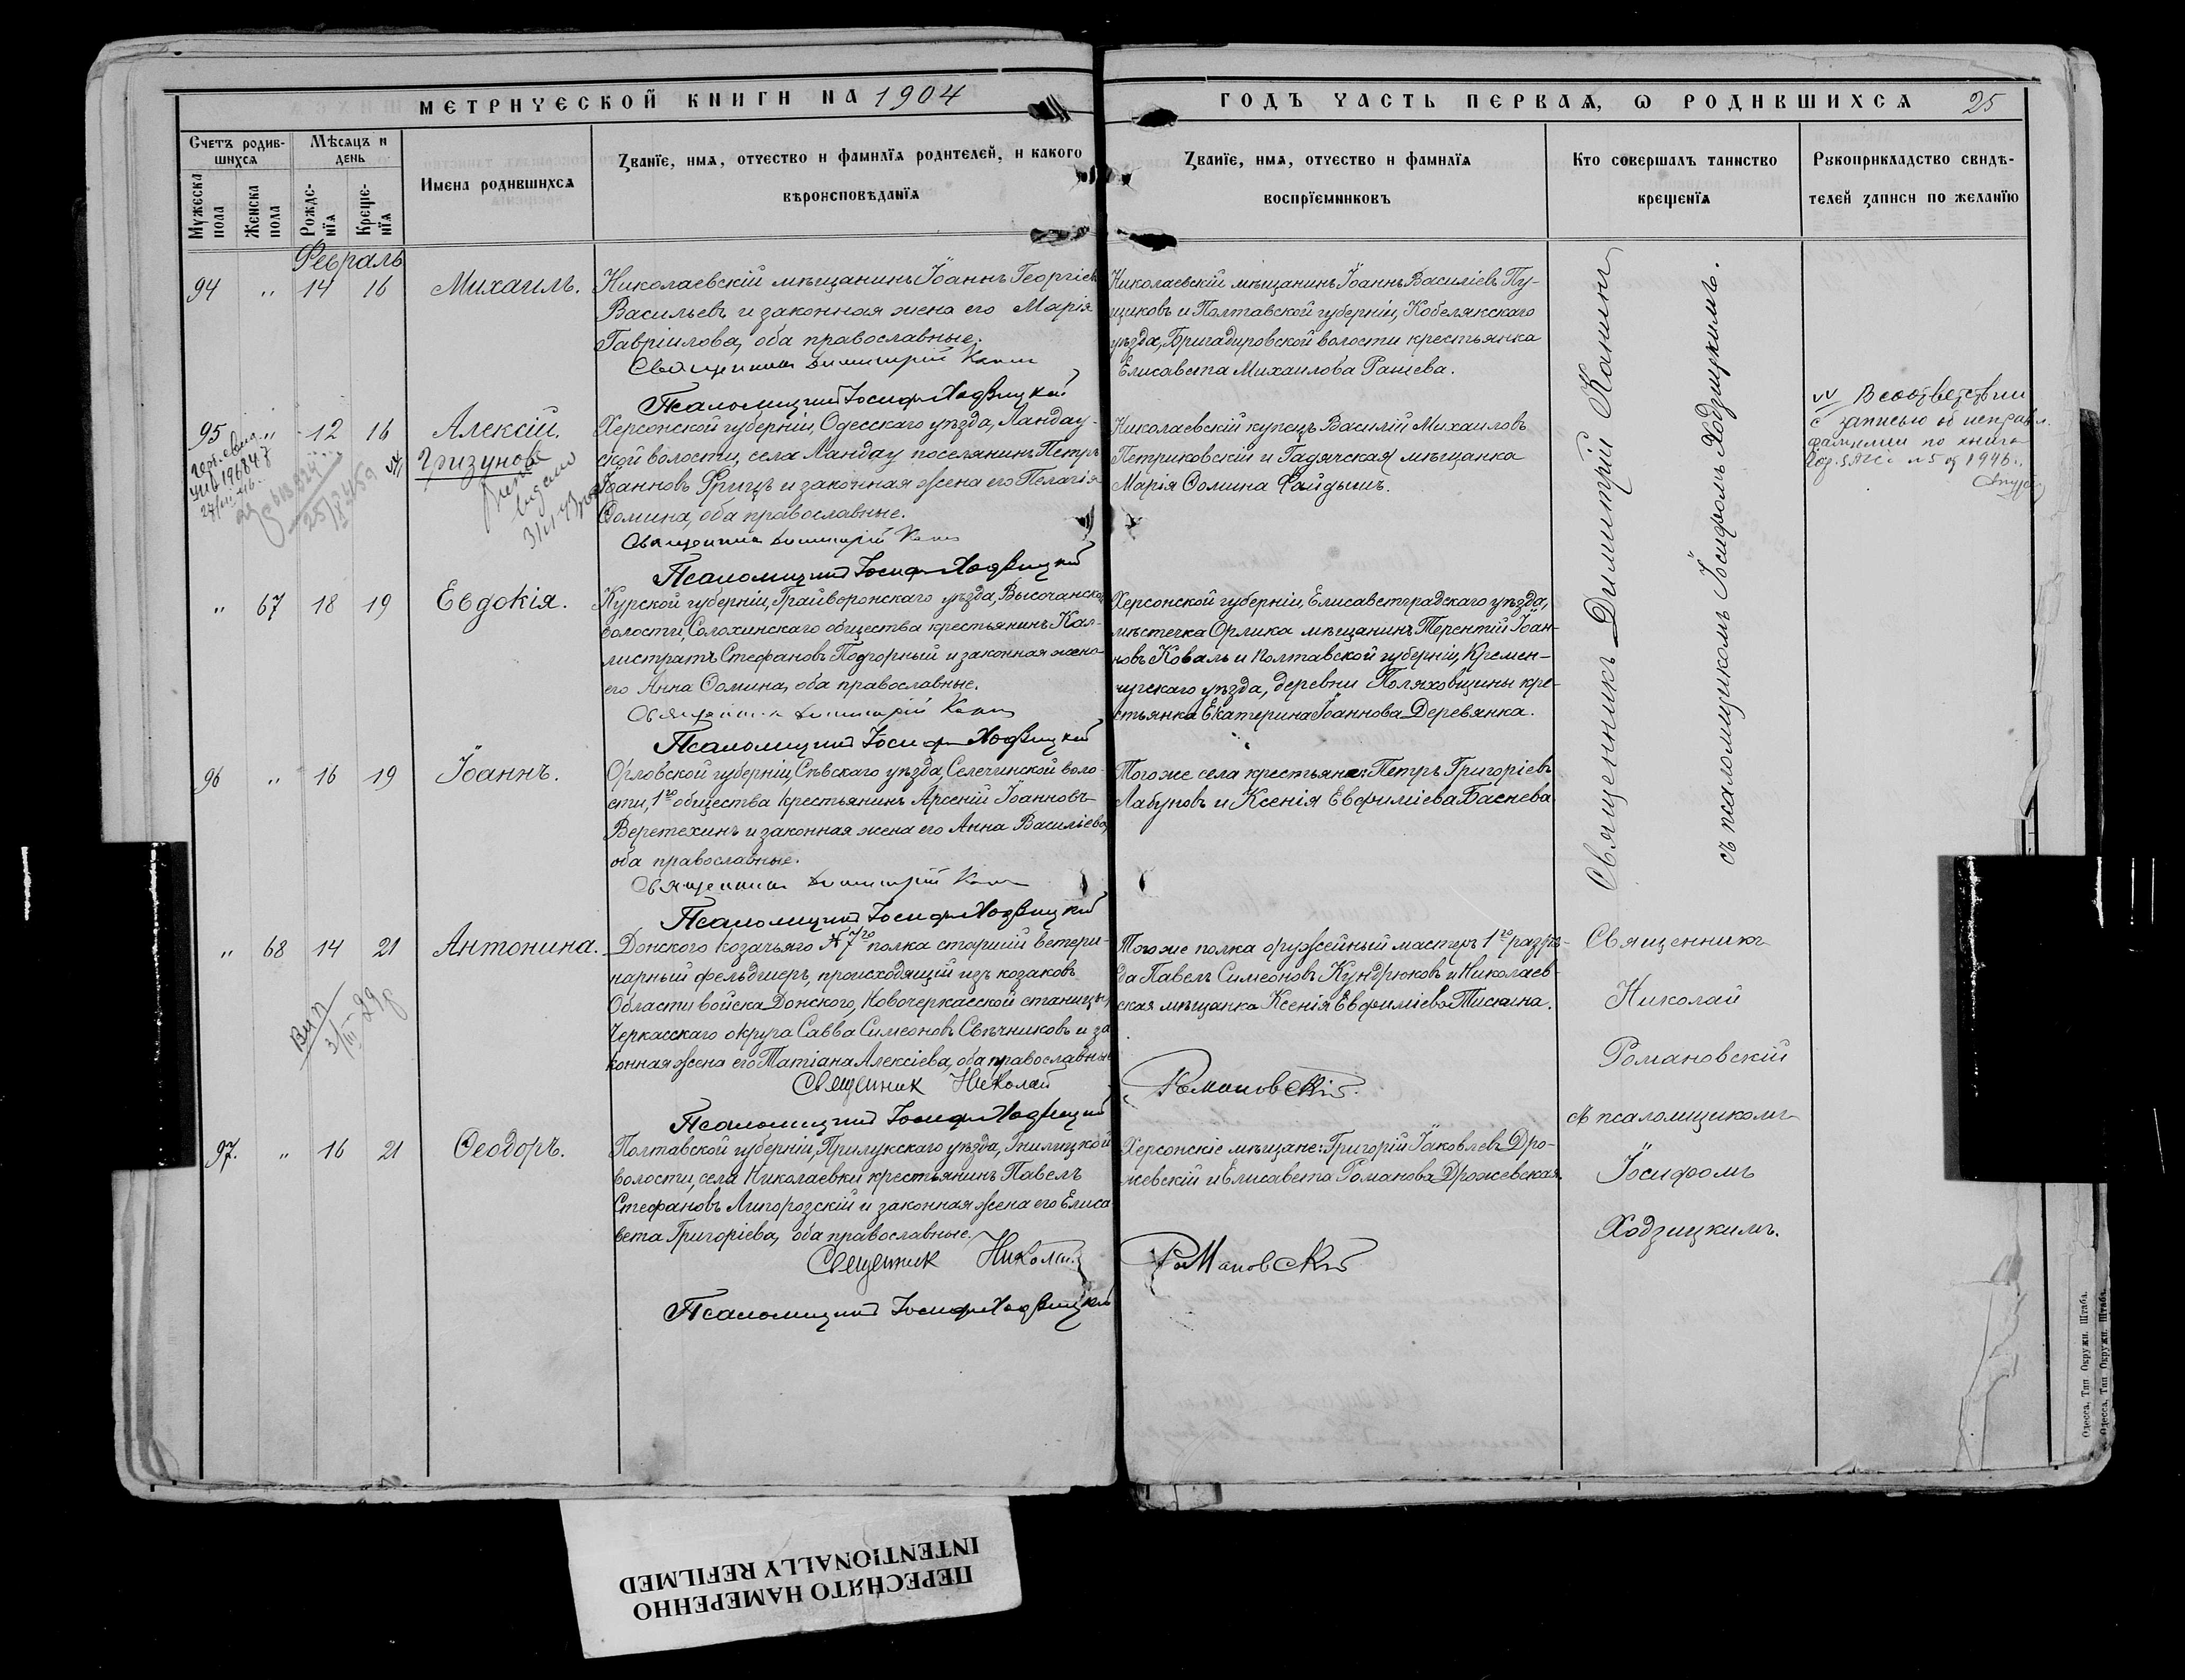 МЕТРИЧЕСКОЙ КНИГИ НА 1904
ГОДЪ ЧАСТЬ ПЕРВАЯ, Ѡ РОДИВШИХСЯ 25
Счетъ родив-
шихся
Мужеска
пола
Женска
пола
Мѣсяцъ и
день
Рожде-
нїя
Креще-
нїя
Имена родившихся
Званїе, имя, отчество и фамилїя родителей, и какого
вѣроисповѣданїя
Званїе, имя, отчество и фамилїя
воспрїемниковъ
Кто совершалъ таинство
крещенїя
Рукоприкладство свидѣ-
телей записи по желанїю
Февраль
94 " 14 16 Михаилъ.
Николаевскій мѣщанинъ Іоаннъ Георгіевъ
Васильевъ и законная жена его Марія
Гавріилова, оба православные.
Священникъ Димитрій
Псаломщикъ Іосифъ Ходзицкій
Николаевскій мѣщанинъ Іоаннъ Василіевъ Пу-
щиковъ и Полтавской губерніи, Кобелякскаго
уѣзда, Бригадировской волости крестьянка
Елисавета Михаилова Рашева.
95 " 12 16 Алексій.
Гризунов
Херсонской губерніи, Одесскаго уѣзда, Ландау-
ской волости, села Ландау поселянинъ Петръ
Іоанновъ Фрицъ и законная жена его Пелагія
Ѳомина, оба православные.
Священникъ Димитрій
Псаломщикъ Іосифъ Ходзицкій
Николаевскій купецъ Василій Михаиловъ
Петриковскій и Гадячская мѣщанка
Марія Ѳомина Файдышъ.
В соответствии
с записью об исправл.
фамилии по книге
№ 5 1946
67 18 19 Евдокія.
Курской губерніи, Грайворонскаго уѣзда, Высочанской
волости, Солохинскаго общества крестьянинъ Кал-
листратъ Стефановъ Подгорный и законная жена
его Анна Ѳомина, оба православные.
Священникъ Димитрій
Псаломщикъ Іосифъ Ходзицкій
Херсонской губерніи, Елисаветградскаго уѣзда,
мѣстечка Орлика мѣщанинъ Терентій Іоан-
новъ Коваль и Полтавской губерніи, Кремен-
чугскаго уѣзда, деревни Поляховщины кре-
стьянка Екатерина Іоаннова Деревянка.
96 " 16 19 Іоаннъ.
Орловской губерніи, Сѣвскаго уѣзда, Селечинской воло-
сти, 1го общества крестьянинъ Арсеній Іоанновъ
Веретехинъ и законная жена его Анна Василіева,
оба православные.
Священникъ Димитрій
Псаломщикъ Іосифъ Ходзицкій
Того же села крестьяне: Петръ Григоріевъ
Лабуновъ и Ксенія Евфиміева Баснева
Священникъ Димитрій Канинъ
съ псаломщикомъ Іосифомъ Ходзицкимъ.
" 68 14 21 Антонина.
Донского козачьяго № 7го полка старшій ветери-
нарный фельдшеръ, происходящій изъ козаковъ
Области войска Донского, Новочеркасской станицы,
Черкасскаго округа Савва Симеоновъ Свѣчниковъ и за
конная жена его Татіана Алексіева, оба православные
Священник Николай Романовскій.
Псаломщикъ Іосифъ Ходзицкій
Того же полка оружейный мастеръ 1го разря-
да Павелъ Симеоновъ Кундрюковъ и Николаев-
ская мѣщанка Ксенія Евфиміева Тискина.
97. " 16 21 Ѳеодоръ.
Полтавской губерніи, Прилукскаго уѣзда, Гнилицкой
волости, села Николаевки крестьянинъ Павелъ
Стефановъ Лигорозскій и законная жена его Елиса
вета Григоріева, оба православные.
Священник Николай Романовскій
Псаломщикъ Іосифъ Ходзицкій
Херсонскіе мѣщане: Григорій Іаковлевъ Дро-
жевскій и Елисавета Романова Дрожевская
Священникъ
Николай
Романовскій
съ псаломщикомъ
Іосифомъ
Ходзицкимъ.
Одесса. Тип Окружн. Штаба.
Одесса. Тип Окружн. Штаба.
ПЕРЕСНЯТО НАМЕРЕННО
INTENTIONALLY REFILMED